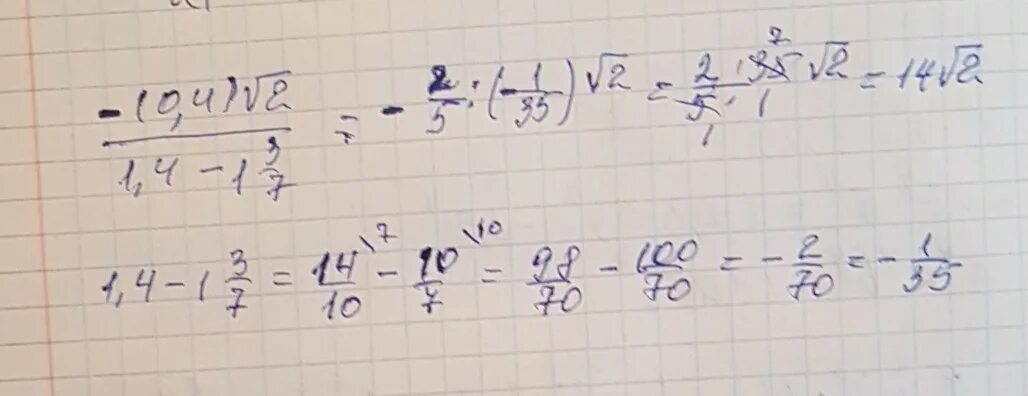 -(0,4)√2 / (1,4 - 1 3/7) = - 2/5 : (-1/35) √2 = (2 · 35)/(5 · 1) √2 = 14√2
7
1 1
1,4 - 1 3/7 = 14/10 \7 - 10/7 \10 = 98/70 - 100/70 = - 2/70 = - 1/35